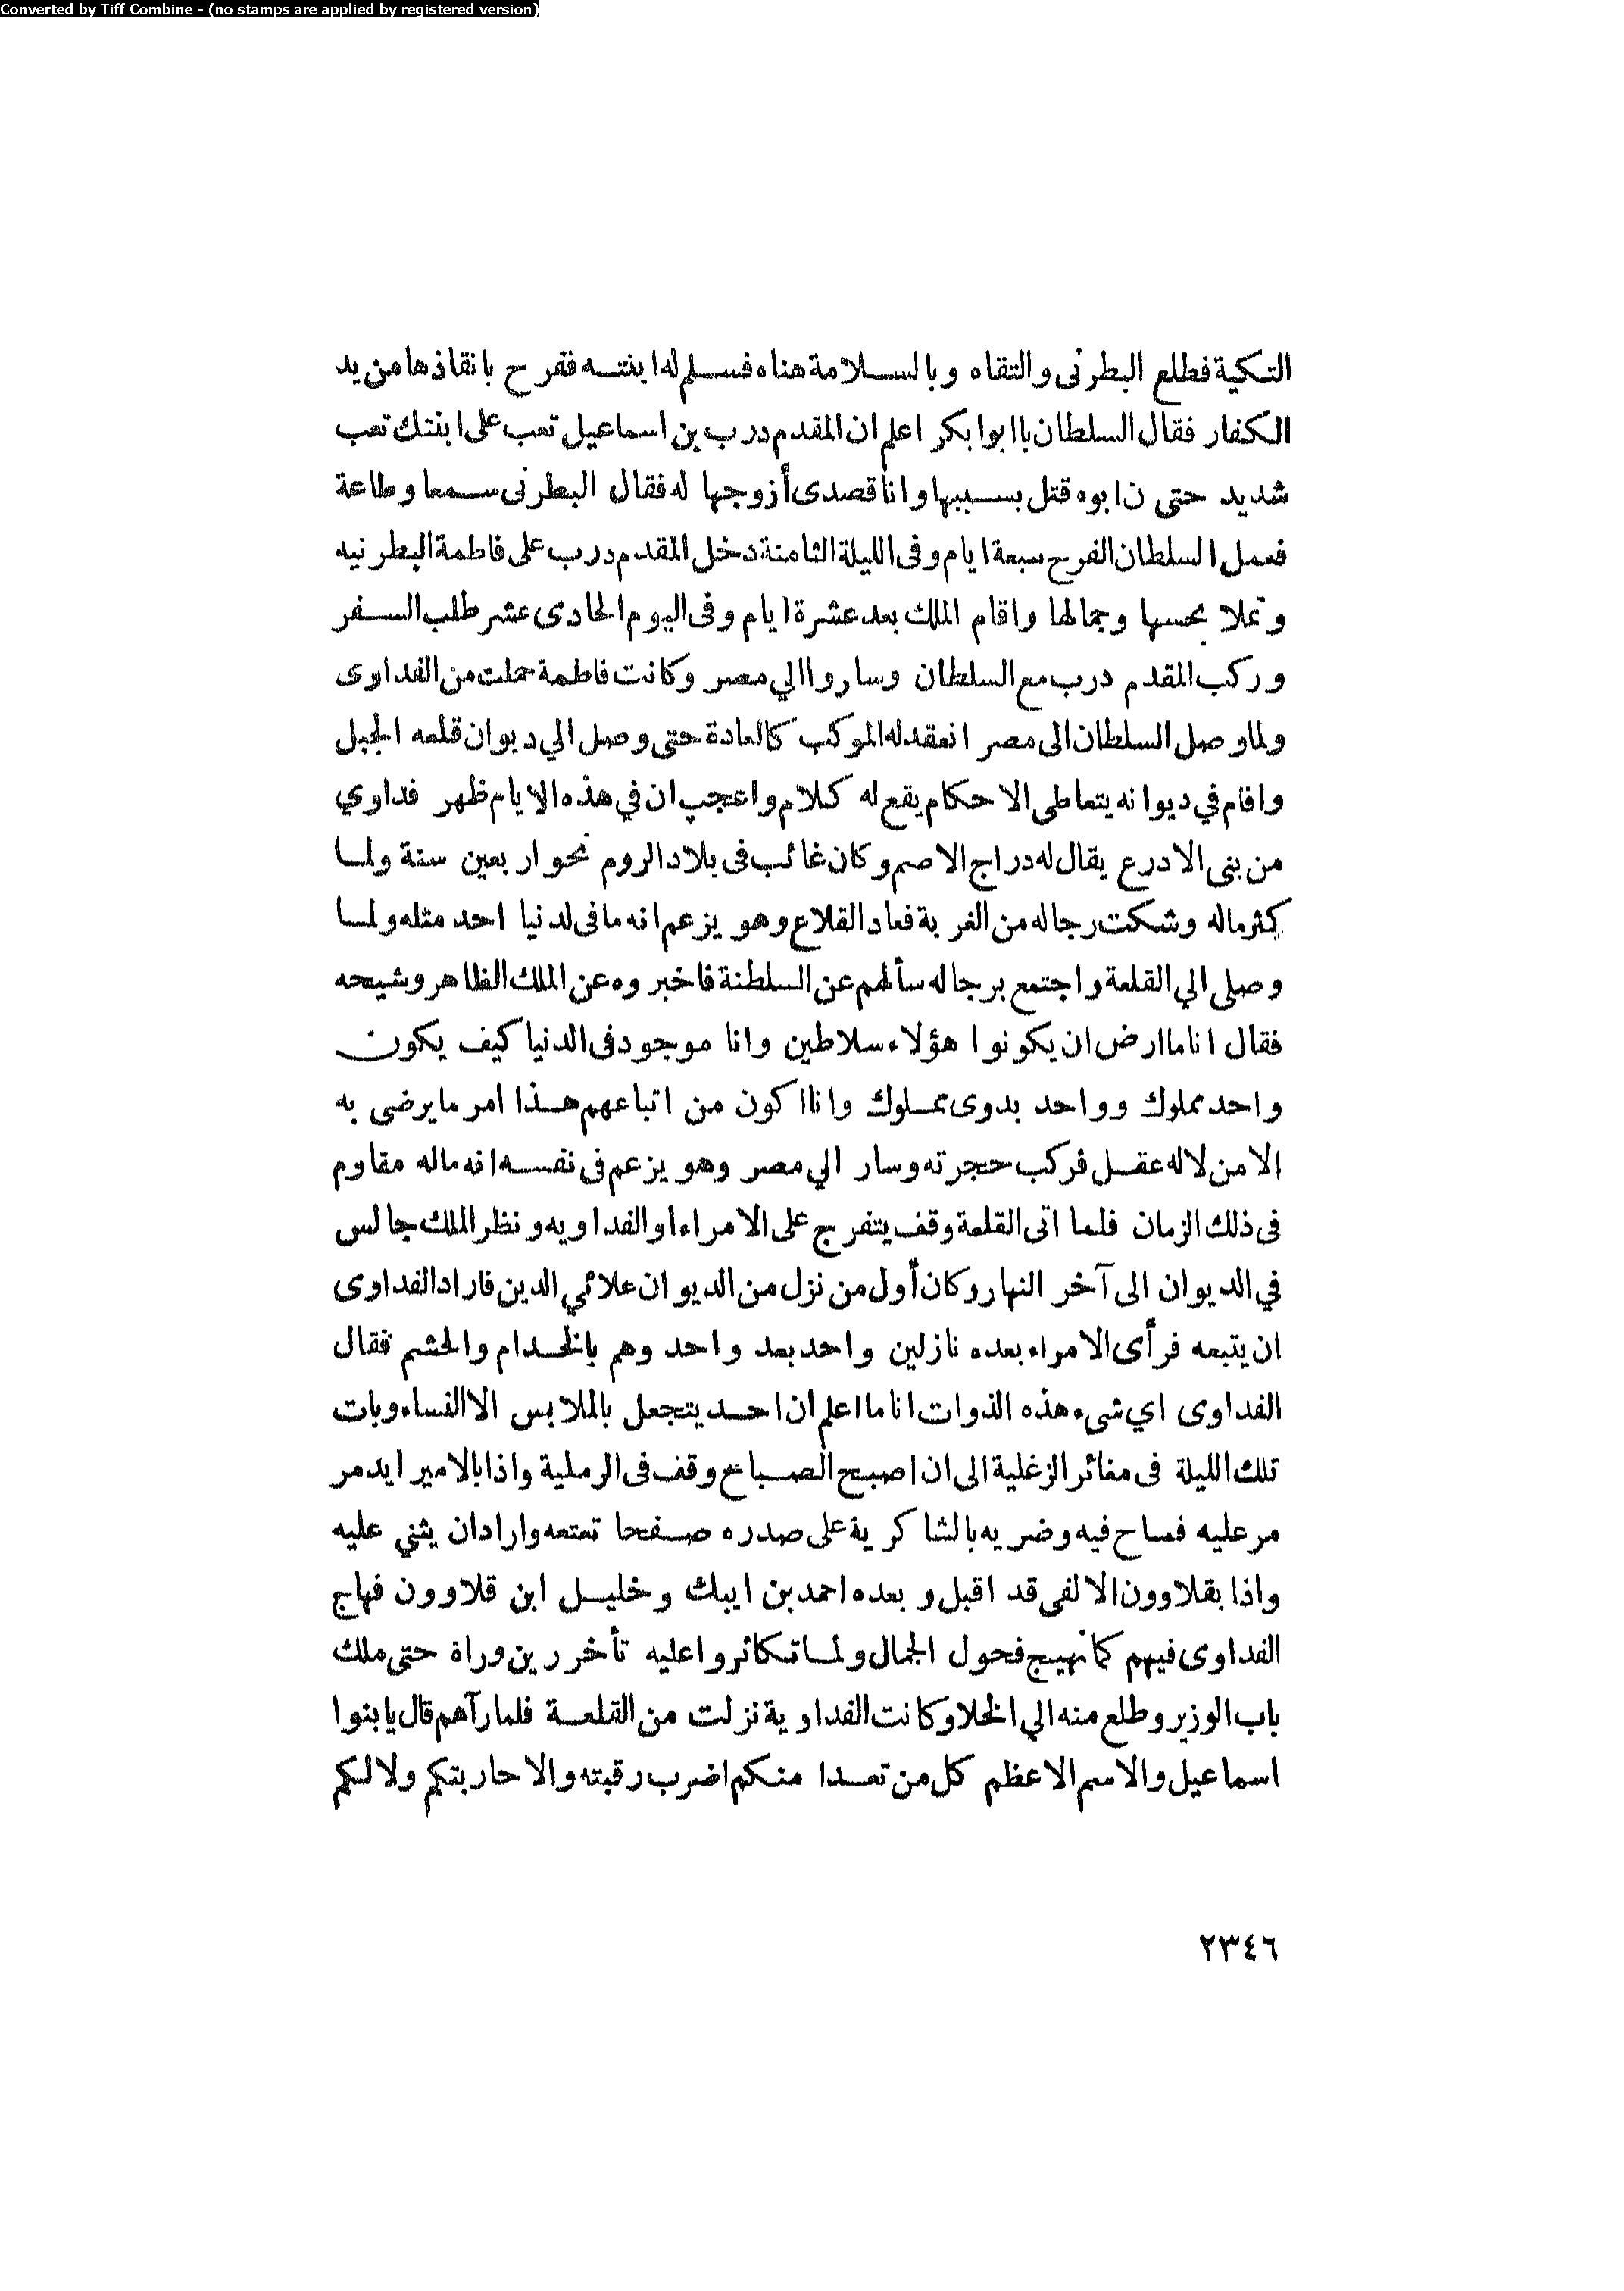 Converted by Tiff Combine - (no stamps are applied by registered version)
التكية فطلع البطرنى والتقاه وبالسلامة هناه فسلم له ابنته ففرح بانقاذها من يد
الكفار فقال السلطان باابوا بكر اعلم ان المقدم درب بن اسماعيل تعب على ابنتك تعب
شديد حتى ن ابوه قتل بسببها وانا قصدى أزوجها له فقال البطرنى سمعا وطاعة
فعمل السلطان الفرح سبعة ايام وفى الليلة الثامنة دخل المقدم درب على فاطمة البطرنيه
وتملا بحسها وجمالها واقام الملك بعد عشرة ايام وفى اليوم الحادى عشر طلب السفر
وركب المقدم درب مع السلطان وساروا الي مصر وكانت فاطمة حملت من الفداوى
ولما وصل السلطان الى مصر انعقد له الموكب كالعادة حتى وصل الي ديوان قلعه الجبل
واقام في ديوانه يتعاطى الاحكام يقع له كلام واعجب ان في هذه الايام ظهر فداوي
من بنى الادرع يقال له دراج الاصم وكان غائب فى بلاد الروم نحو اربعين سنة ولما
كثر ماله وشكت رجاله من الغربة فعاد القلاع وهو يزعم انه ما فى لدنيا احد مثله ولما
وصلى الي القلعة واجتمع برجاله سألهم عن السلطنة فاخبروه عن الملك الظاهر وشيحه
فقال انا ما ارض ان يكونوا هؤلاء سلاطين وانا موجود فى الدنيا كيف يكون
واحد مملوك وواحد بدوى مملوك وانا اكون من اتباعهم هذا امر ما يرضى به
الا من لا له عقل فركب حجرته وسار الي مصر وهو يزعم فى نفسه انه ماله مقاوم
فى ذلك الزمان فلما اتى القلعة وقف يتفرج على الامراء او الفداويه ونظر الملك جالس
في الديوان الى آخر النهار وكان أول من نزل من الديوان علائي الدين فاراد الفداوى
ان يتبعه فرأى الامراء بعده نازلين واحد بعد واحد وهم بالخدام والحشم فقال
الفداوى اي شىء هذه الذوات انا ما اعلم ان احد يتجعل بالملابس الا النساء وبات
تلك الليلة فى مغائر الزغلية الى ان اصبح الصباح وقف فى الرملية واذا بالامير ايدمر
مر عليه فصاح فيه وضربه بالشاكرية على صدره صفحا تعتعه واراد ان يثني عليه
واذا بقلاوون الالفى قد اقبل وبعده احمد بن ايبك وخليل ابن قلاوون فهاج
الفداوى فيهم كما تهيج فحول الجمال ولما تكاثروا عليه تأخر رين وراة حتى ملك
باب الوزير وطلع منه الي الخلا وكانت الفداوية نزلت من القلعة فلما رآهم قال يا بنوا
اسماعيل والاسم الاعظم كل من تعدا منكم اضرب رقبته والا حاربتكم ولالكم
٢٣٤٦